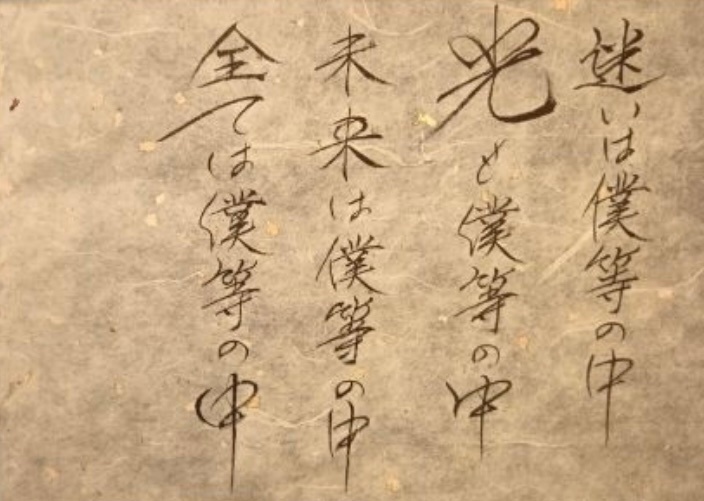 迷いは僕等の中
光と僕等の中
未来は僕等の中
全ては僕等の中